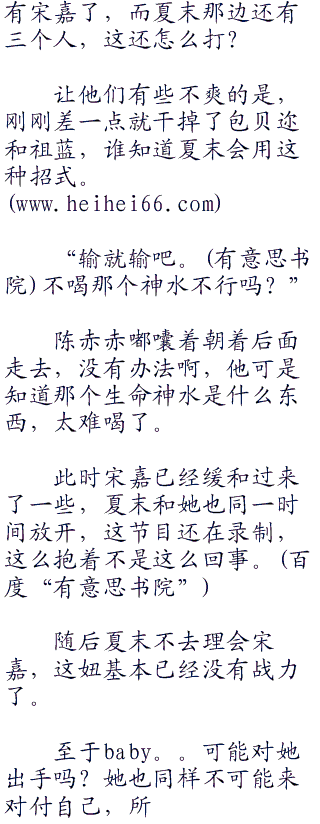 有宋嘉了，而夏末那边还有
三个人，这还怎么打？
让他们有些不爽的是，
刚刚差一点就干掉了包贝迩
和祖蓝，谁知道夏末会用这
种招式。
(www.heihei66.com)
“输就输吧。(有意思书
院)不喝那个神水不行吗？”
陈赤赤嘟囔着朝着后面
走去，没有办法啊，他可是
知道那个生命神水是什么东
西，太难喝了。
此时宋嘉已经缓和过来
了一些，夏末和她也同一时
间放开，这节目还在录制，
这么抱着不是这么回事。(百
度“有意思书院”)
随后夏末不去理会宋
嘉，这妞基本已经没有战力
了。
至于baby。。可能对她
出手吗？她也同样不可能来
对付自己，所